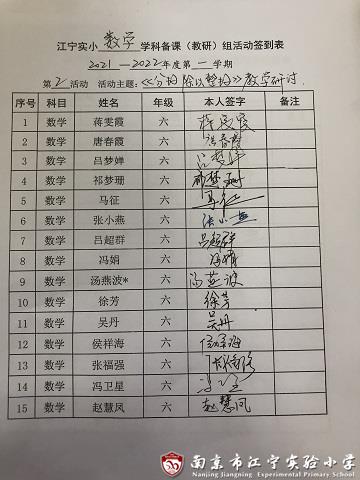 江宁实小 数学 学科备课（教研）组活动签到表
2021—2022年度第一学期
第2活动 活动主题：《分数除以整数》教学研讨
序号 科目 姓名 年级 本人签字 备注
1 数学 蒋雯霞 六 蒋雯霞
2 数学 唐春霞 六 唐春霞
3 数学 吕梦婵 六 吕梦婵
4 数学 祁梦珊 六 祁梦珊
5 数学 马征 六 马征
6 数学 张小燕 六 张小燕
7 数学 吕超群 六 吕超群
8 数学 冯娟 六 冯娟
9 数学 汤燕波* 六 汤燕波
10 数学 徐芳 六 徐芳
11 数学 吴丹 六 吴丹
12 数学 侯祥海 六 侯祥海
13 数学 张福强 六
14 数学 冯卫星 六
15 数学 赵慧凤 六 赵慧凤
南京市江宁实验小学
Nanjing Jiangning Experimental Primary School